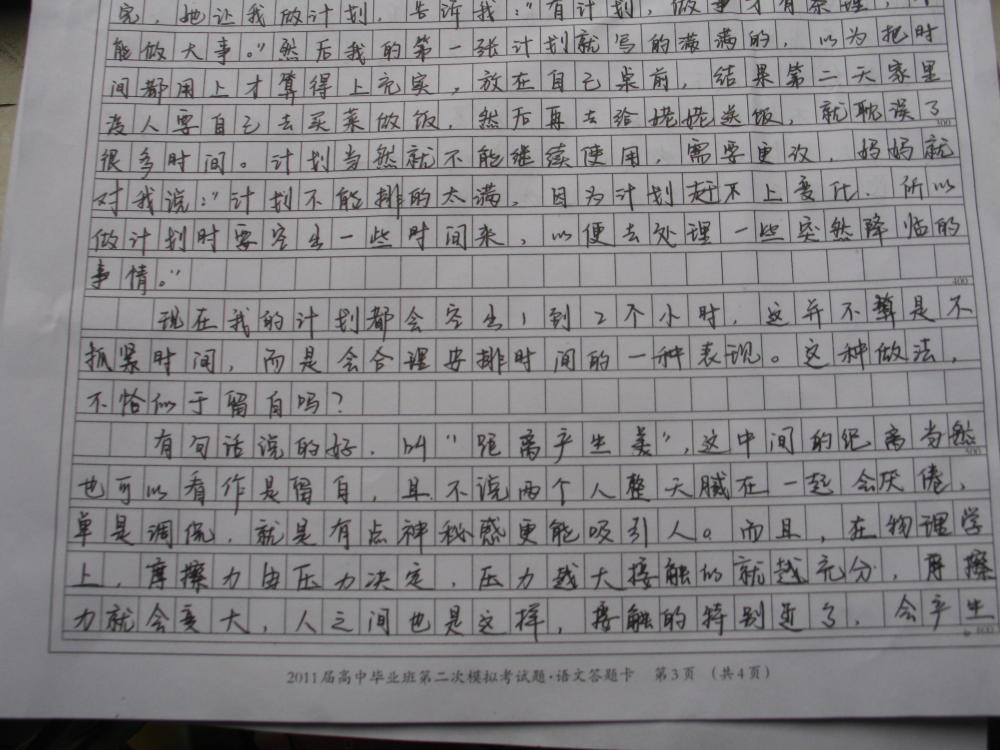 完，她让我做计划，告诉我："有计划，做事才有条理，才
能做大事。"然后我的第一张计划就写的满满的，以为把时
间都用上才算得上充实，放在自己桌前，结果第二天家里
没人要自己去买菜做饭，然后再去给姥姥送饭，就耽误了
300
很多时间。计划当然就不能继续使用，需要更改，妈妈就
对我说："计划不能排的太满，因为计划赶不上变化，所以
做计划时要空出一些时间来，以便去处理一些突然降临的
事情。"
400
现在我的计划都会空出1到2个小时，这并不算是不
抓紧时间，而是会合理安排时间的一种表现。这种做法，
不恰似于留白吗？
有句话说的好，叫"距离产生美"，这中间的距离当然
500
也可以看作是留自，且不说两个人整天腻在一起会厌倦，
单是调侃，就是有点神秘感更能吸引人。而且，在物理学
上，摩擦力由压力决定，压力越大接触的就越充分，摩擦
力就会变大，人之间也是这样，接触的特别近了，会产生
600
2011届高中毕业班第二次模拟考试题·语文答题卡 第3页 （共4页）